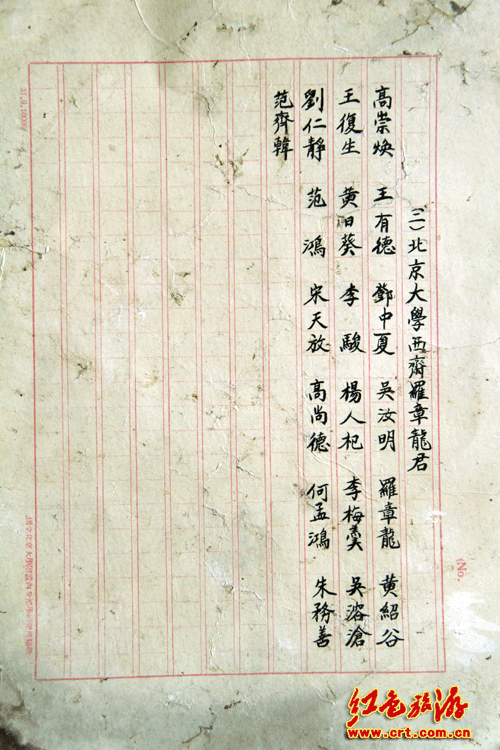 (No.
(二)北京大學西齋羅章龍君
高崇焕 王有德 鄧中夏 吳汝明 羅章龍 黄紹谷
王復生 黄日葵 李駿 楊人杞 李梅羹 吳溶滄
劉仁靜 范鴻 宋天放 高尚德 何孟鴻 朱務善
范齊韓
红色旅游
www.crt.com.cn